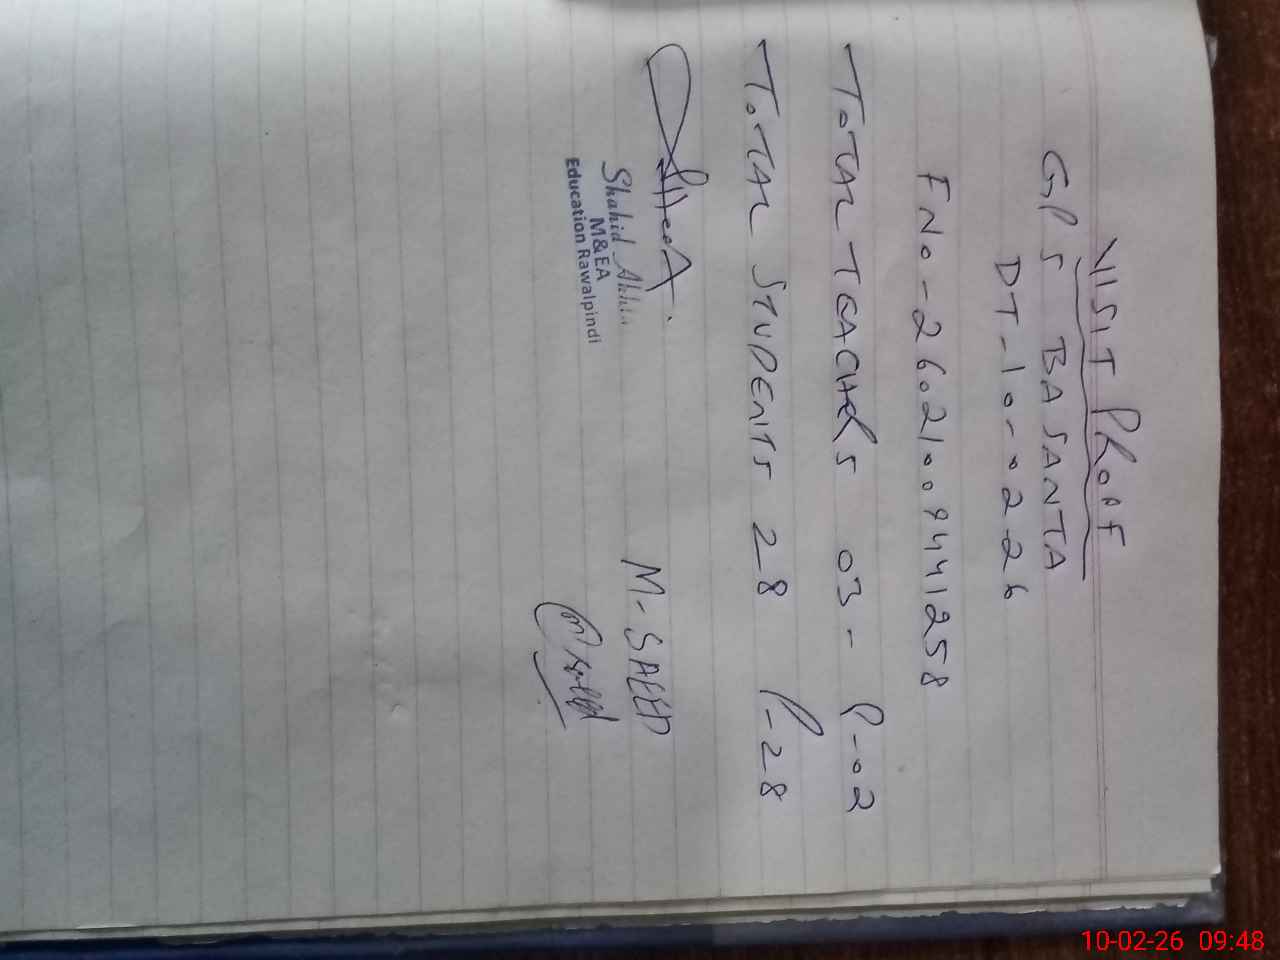 VISIT PROOF
GPS BASANTA
DT-10-02-26
FNo-26021009441258
TOTAL TEACHRS 03- P-02
TOTAL STUDENTS 28 P-28
M-SAEED
Shahid
M&EA
Education Rawalpindi
10-02-26 09:48